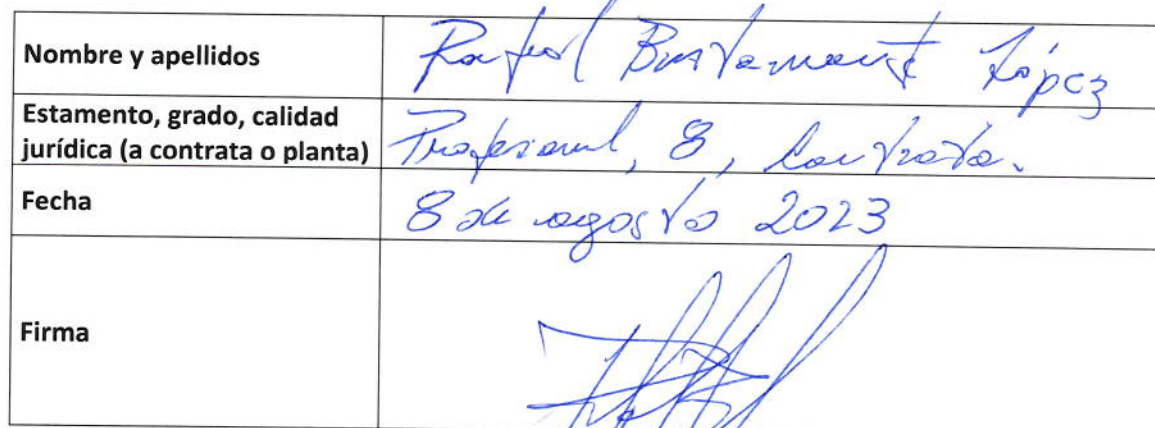 Nombre y apellidos
Rafael Bustamante López
Estamento, grado, calidad
jurídica (a contrata o planta)
Profesional, 8, Contrata.
Fecha
8 de agosto 2023
Firma